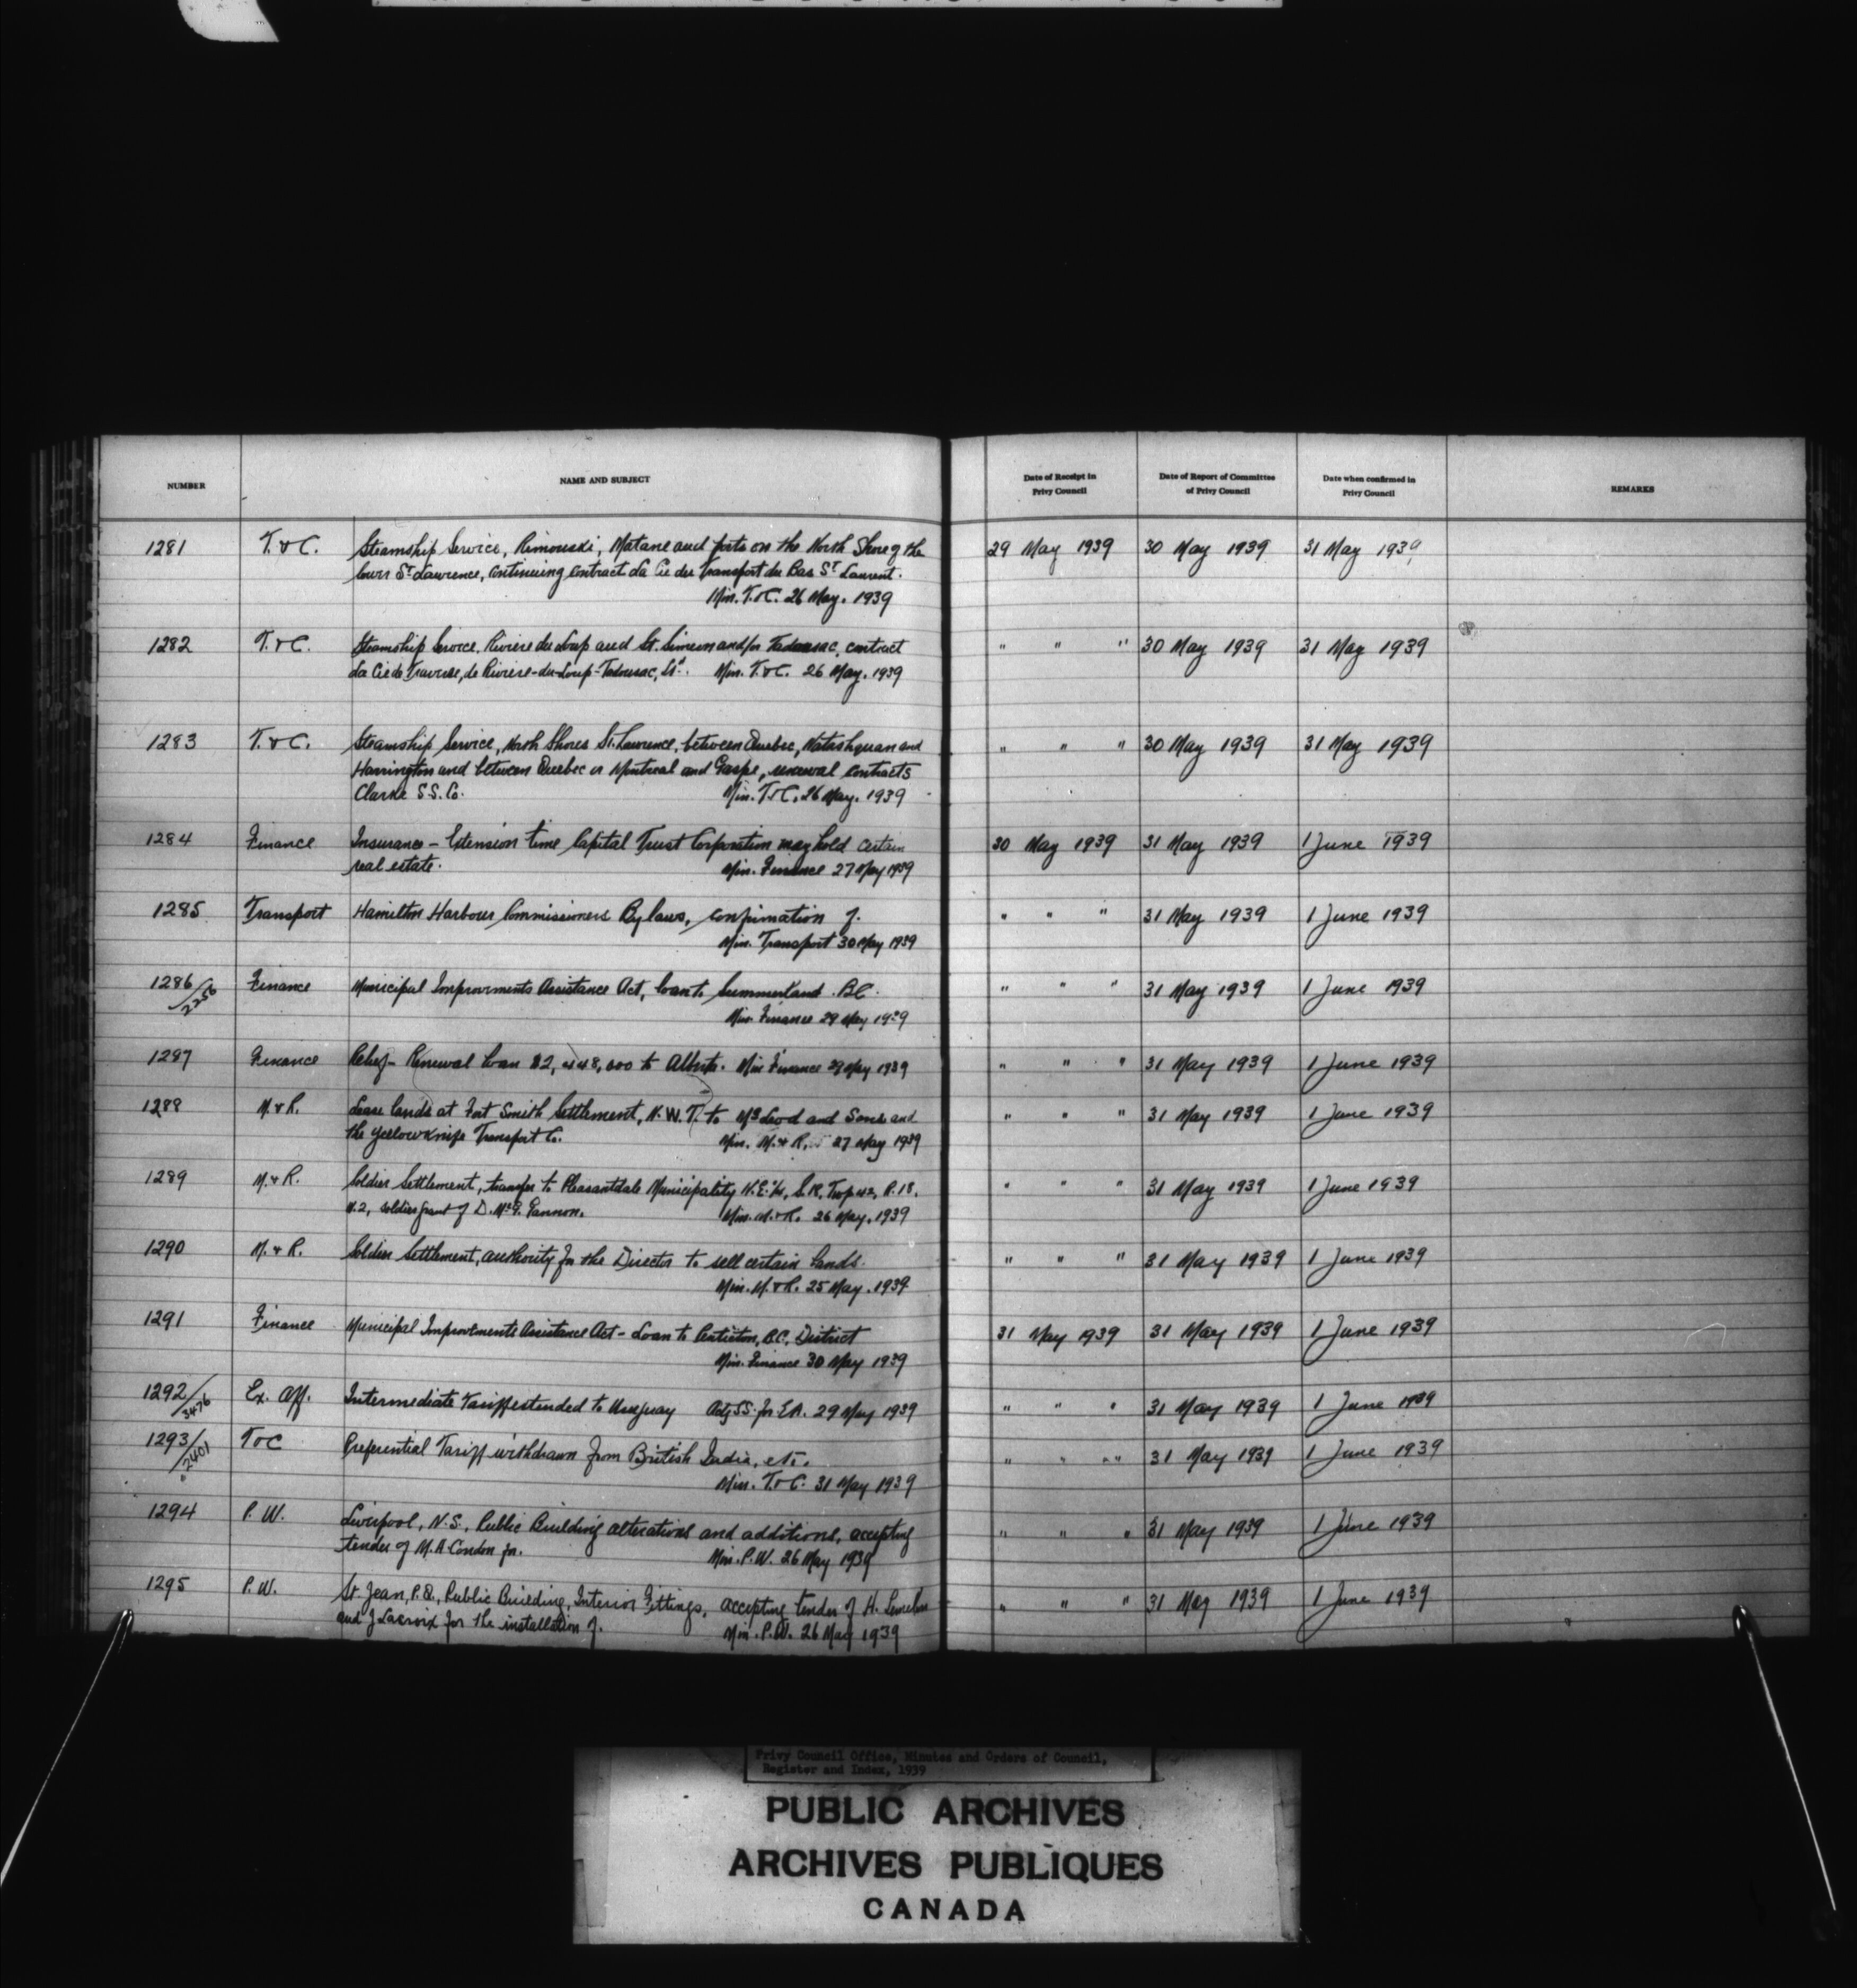 NUMBER NAME AND SUBJECT Date of Receipt in Privy Council Date of Report of Committee of Privy Council Date when confirmed in Privy Council REMARKS
1281 T. & C. Steamship Service, Rimouski, Matane and ports on the North Shore of the 29 May 1939 30 May 1939 31 May 1939
lower St. Lawrence, continuing contract La Cie du Transport du Bas St Laurent.
Min. T. & C. 26 May. 1939
1282 T. & C. Steamship Service, Riviere du Loup and St. Simeon and/or Tadousac, contract " " " 30 May 1939 31 May 1939
La Cie de Traverse, de Riviere-du-Loup-Tadousac, Ltd. Min. T. & C. 26 May. 1939
1283 T. & C. Steamship Service, North Shores St. Lawrence, between Quebec, Natashquan and " " " 30 May 1939 31 May 1939
Harrington and between Quebec or Montreal and Gaspe, renewal contracts
Clarke S.S. Co. Min. T. & C. 26 May. 1939
1284 Finance Insurance - Extension time Capital Trust Corporation may hold certain 30 May 1939 31 May 1939 1 June 1939
real estate. Min. Finance 27 May 1939
1285 Transport Hamilton Harbour Commissioners By laws, confirmation of. " " " 31 May 1939 1 June 1939
Min. Transport 30 May 1939
1286/2256 Finance Municipal Improvements Assistance Act, loan to Summerland B.C. " " " 31 May 1939 1 June 1939
Min. Finance 29 May 1939
1287 Finance Relief - Renewal loan $2,448,000 to Alberta. Min Finance 29 May 1939 " " " 31 May 1939 1 June 1939
1288 M. & R. Lease lands at Fort Smith Settlement, N.W.T. to McLeod and Sons and " " " 31 May 1939 1 June 1939
the Yellowknife Transport Co. Min. M. & R. 27 May 1939
1289 M. & R. Soldier Settlement, transfer to Pleasantdale Municipality N.E.¼, S.18, Twp 42, R.18, " " " 31 May 1939 1 June 1939
W.2, soldier grant of D. McG. Gannon. Min. M. & R. 26 May. 1939
1290 M. & R. Soldier Settlement, authority for the Director to sell certain lands. " " " 31 May 1939 1 June 1939
Min. M. & R. 25 May. 1939
1291 Finance Municipal Improvements Assistance Act - Loan to Penticton, B.C. District 31 May 1939 31 May 1939 1 June 1939
Min. Finance 30 May 1939
1292/3476 Ex. Aff. Intermediate Tariff extended to Uruguay Actg SS. for E.A. 29 May 1939 " " " 31 May 1939 1 June 1939
1293/2401 T & C Preferential Tariff withdrawn from British India, etc. " " " 31 May 1939 1 June 1939
Min. T. & C. 31 May 1939
1294 P. W. Liverpool, N.S., Public Building alterations and additions, accepting " " " 31 May 1939 1 June 1939
tender of M. A. Condon for. Min. P.W. 26 May 1939
1295 P. W. St. Jean, P.Q., Public Building, Interior Fittings, accepting tender of H. " " " 31 May 1939 1 June 1939
and J Lacroix for the installation of. Min. P.W. 26 May 1939
Privy Council Office, Minutes and Orders of Council,
Register and Index, 1939
PUBLIC ARCHIVES
ARCHIVES PUBLIQUES
CANADA